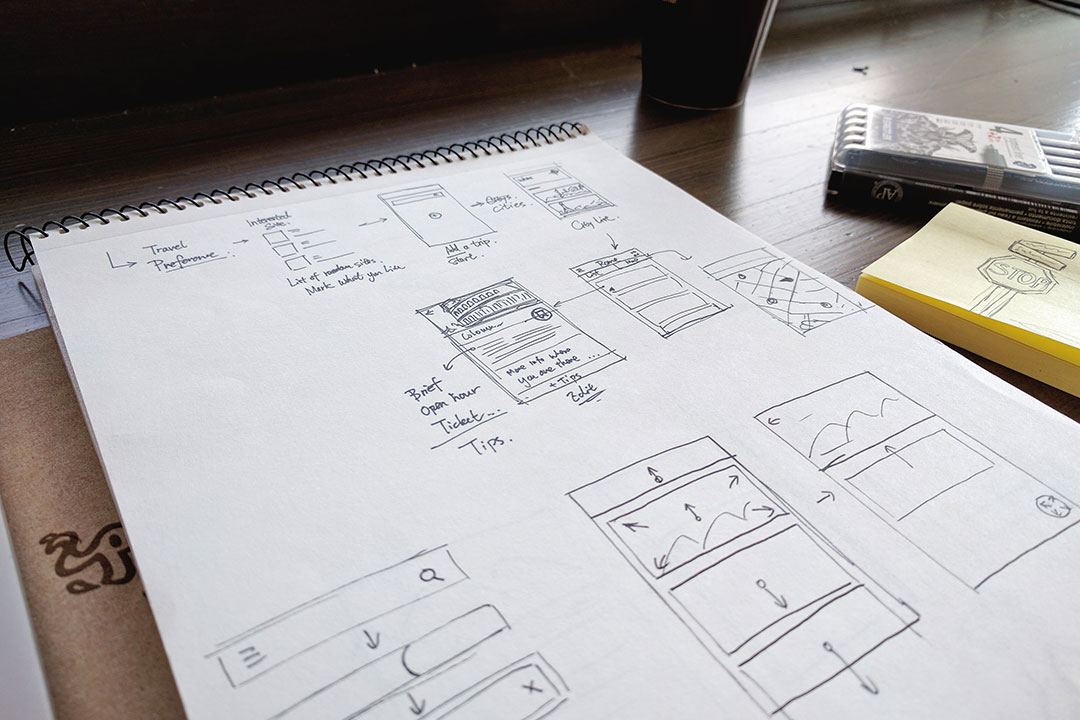 Travel
Preference
Interested
List of random sites.
Mark what you like
Add a trip
Start.
Cities
City List.
List
Colosseum
More info when
you are there ...
+ Tips
Edit
Brief
Open hour
Ticket...
Tips.
STOP
4
AP